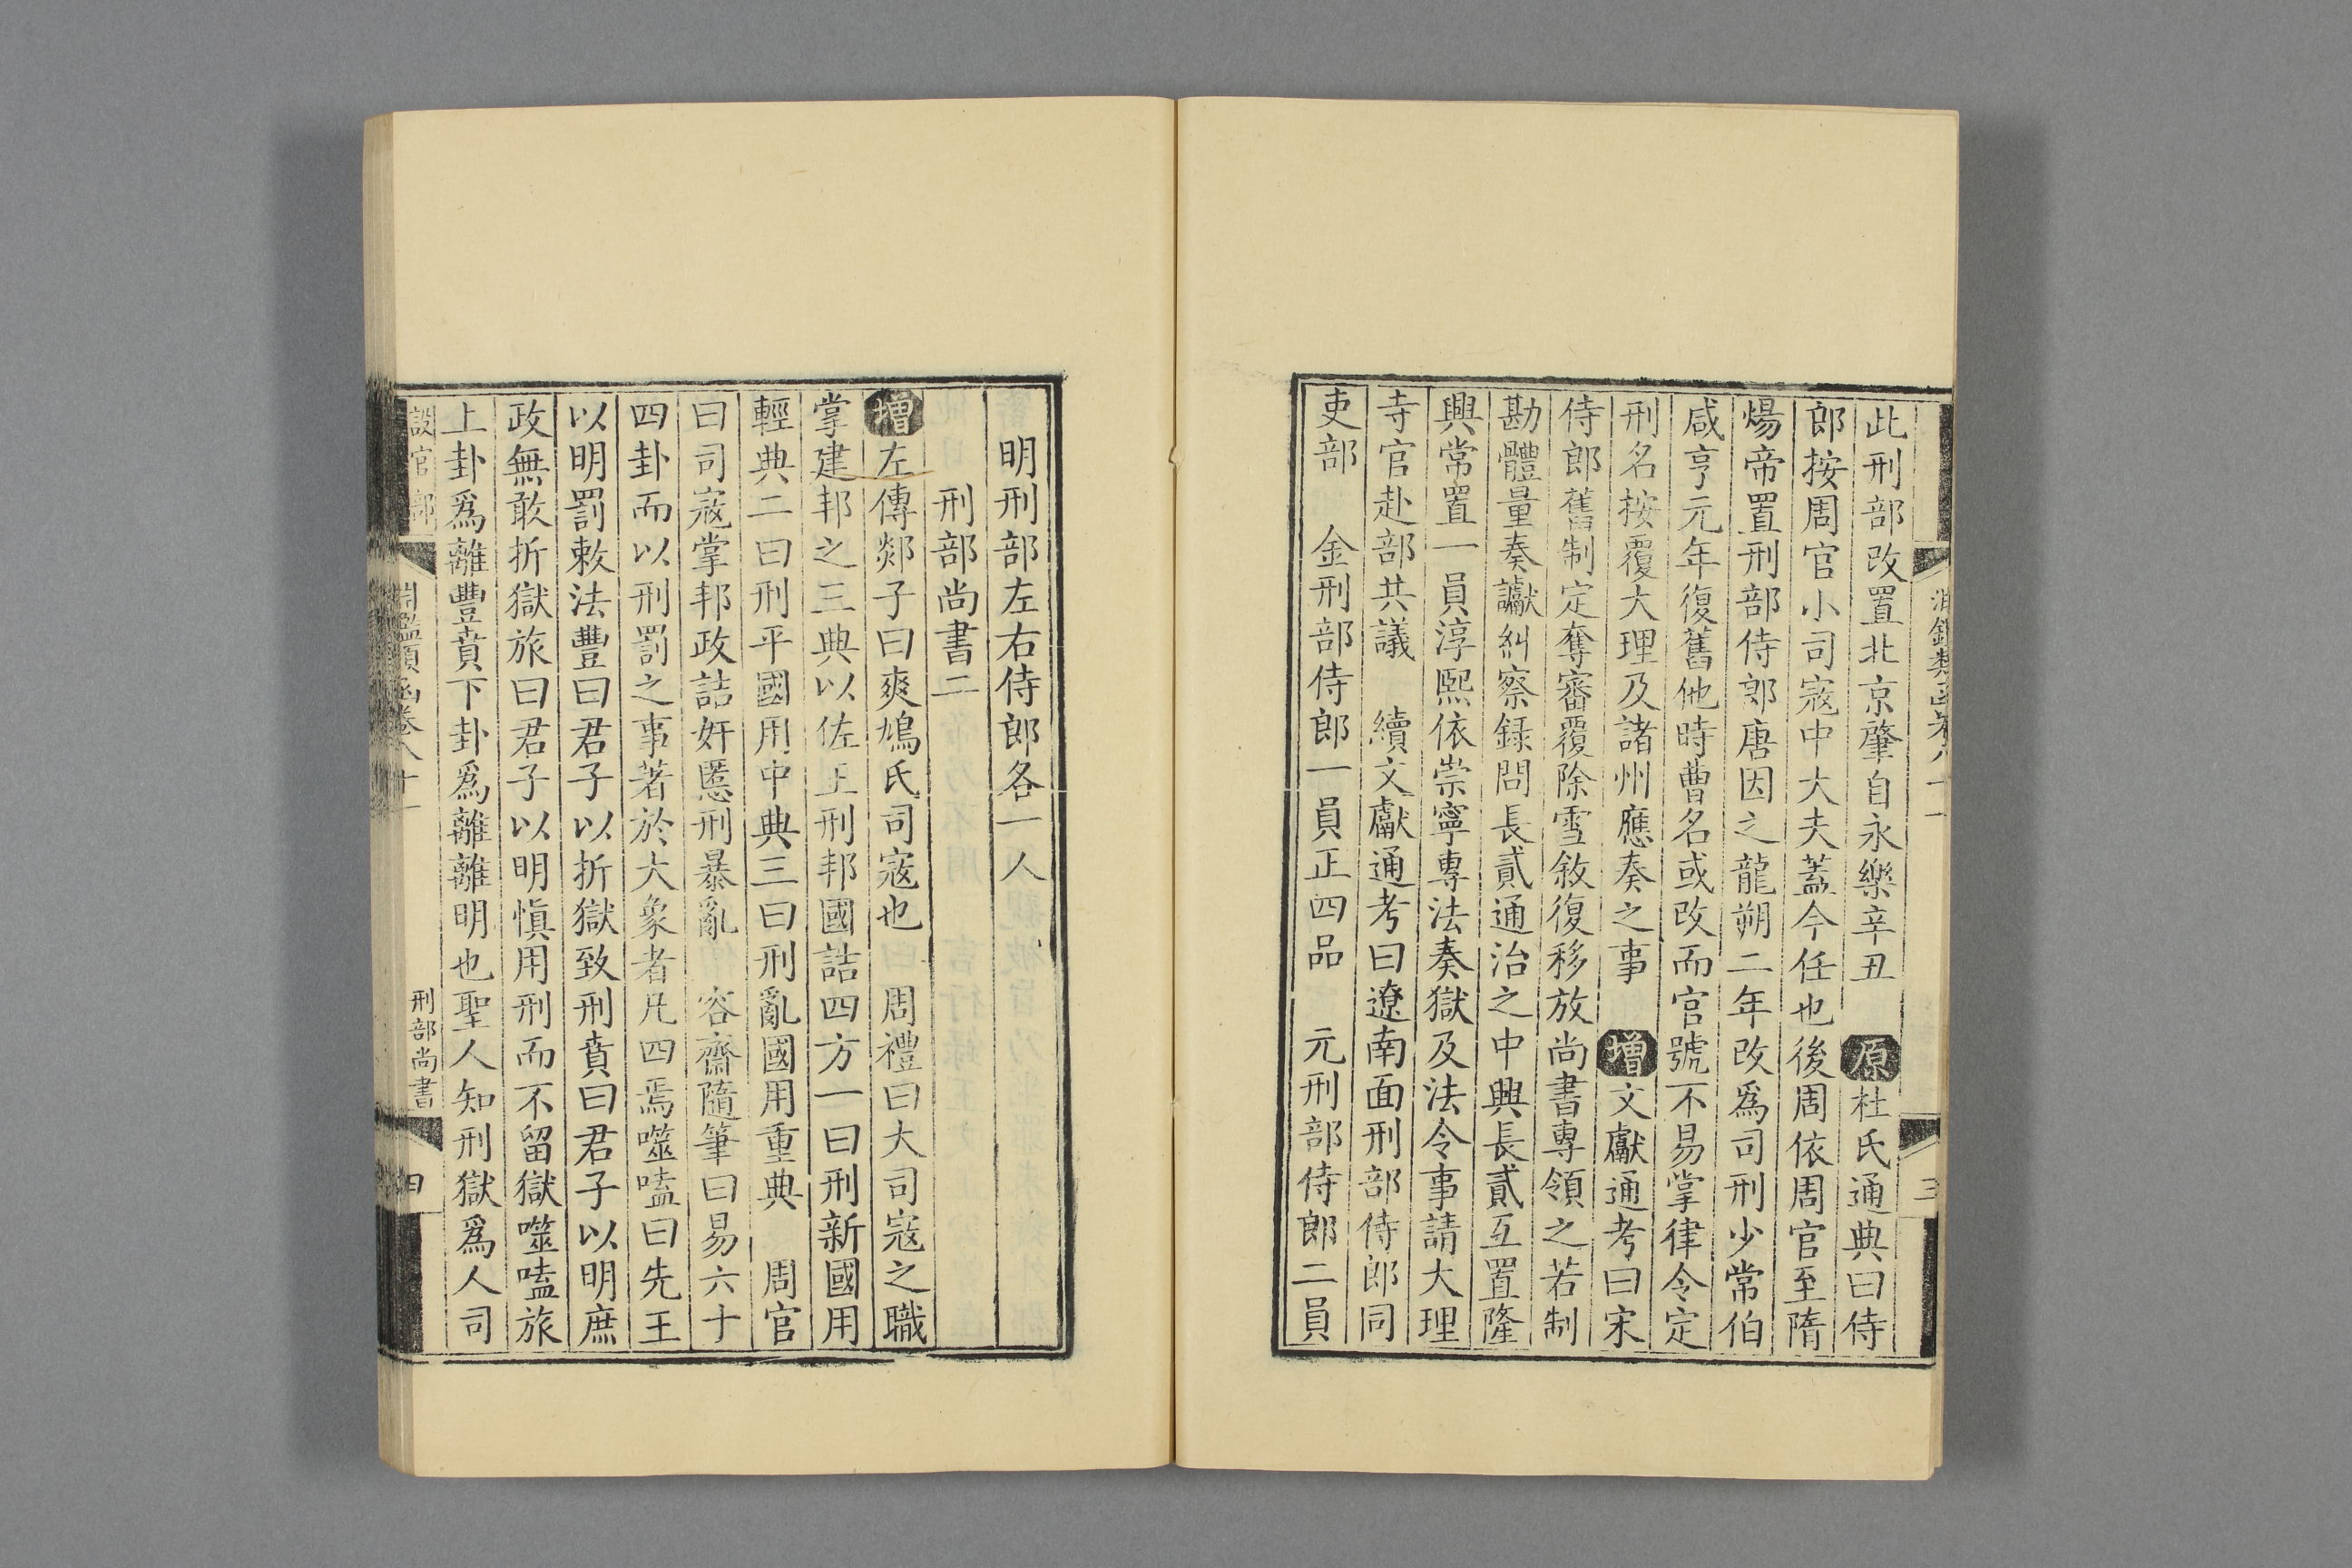 此刑部改置北京肇自永樂辛丑 原杜氏通典曰侍
郎按周官小司寇中大夫蓋今任也後周依周官至隋
煬帝置刑部侍郎唐因之龍朔二年改爲司刑少常伯
咸亨元年復舊他時曹名或改而官號不易掌律令定
刑名按覆大理及諸州應奏之事 增文獻通考曰宋
侍郎舊制定奪審覆除雪敘復移放尚書專領之若制
勘體量奏讞糾察録問長貳通治之中興長貳互置隆
興常置一員淳熙依崇寧專法奏獄及法令事請大理
寺官赴部共議 續文獻通考曰遼南面刑部侍郎同
吏部 金刑部侍郎一員正四品 元刑部侍郎二員
三
明刑部左右侍郎各一人
刑部尚書二
增左傳郯子曰爽鳩氏司寇也 周禮曰大司寇之職
掌建邦之三典以佐王刑邦國詰四方一曰刑新國用
輕典二曰刑平國用中典三曰刑亂國用重典 周官
曰司寇掌邦政詰奸慝刑暴亂 容齋隨筆曰易六十
四卦而以刑罰之事著於大象者凡四焉噬嗑曰先王
以明罰敕法豐曰君子以折獄致刑賁曰君子以明庶
政無敢折獄旅曰君子以明愼用刑而不留獄噬嗑旅
上卦爲離豐賁下卦爲離離明也聖人知刑獄爲人司
設官部 淵鑑類函卷八十一 刑部尚書 四